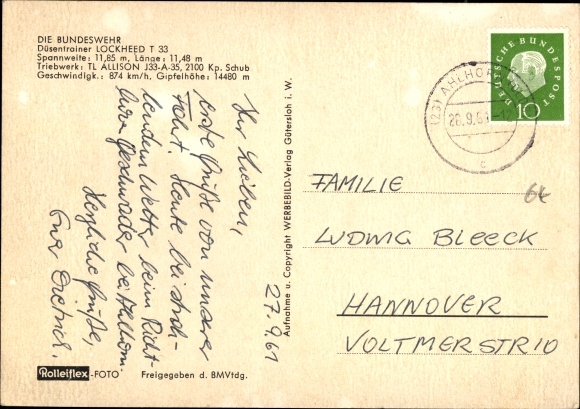 DIE BUNDESWEHR
Düsentrainer LOCKHEED T 33
Spannweite: 11,85 m, Länge: 11,48 m
Triebwerk: TL ALLISON J33-A-35, 2100 Kp. Schub
Geschwindigk.: 874 km/h, Gipfelhöhe: 14480 m
Ihr Lieben,
erste Grüße von unserer
Fahrt. Heute bei strah-
lendem Wetter beim Richt-
hofen Geschwader bei Ahlhorn.
Herzliche Grüße,
Euer Dietrich.
27.9.61
Aufnahme u. Copyright WERBEBILD-Verlag Gütersloh i. W.
Rolleiflex-FOTO Freigegeben d. BMVtdg.
DEUTSCHE BUNDESPOST
10
(23) AHLHORN
28.9.61-12
c
64
FAMILIE
LUDWIG BLEECK
HANNOVER
VOLTMERSTR 10